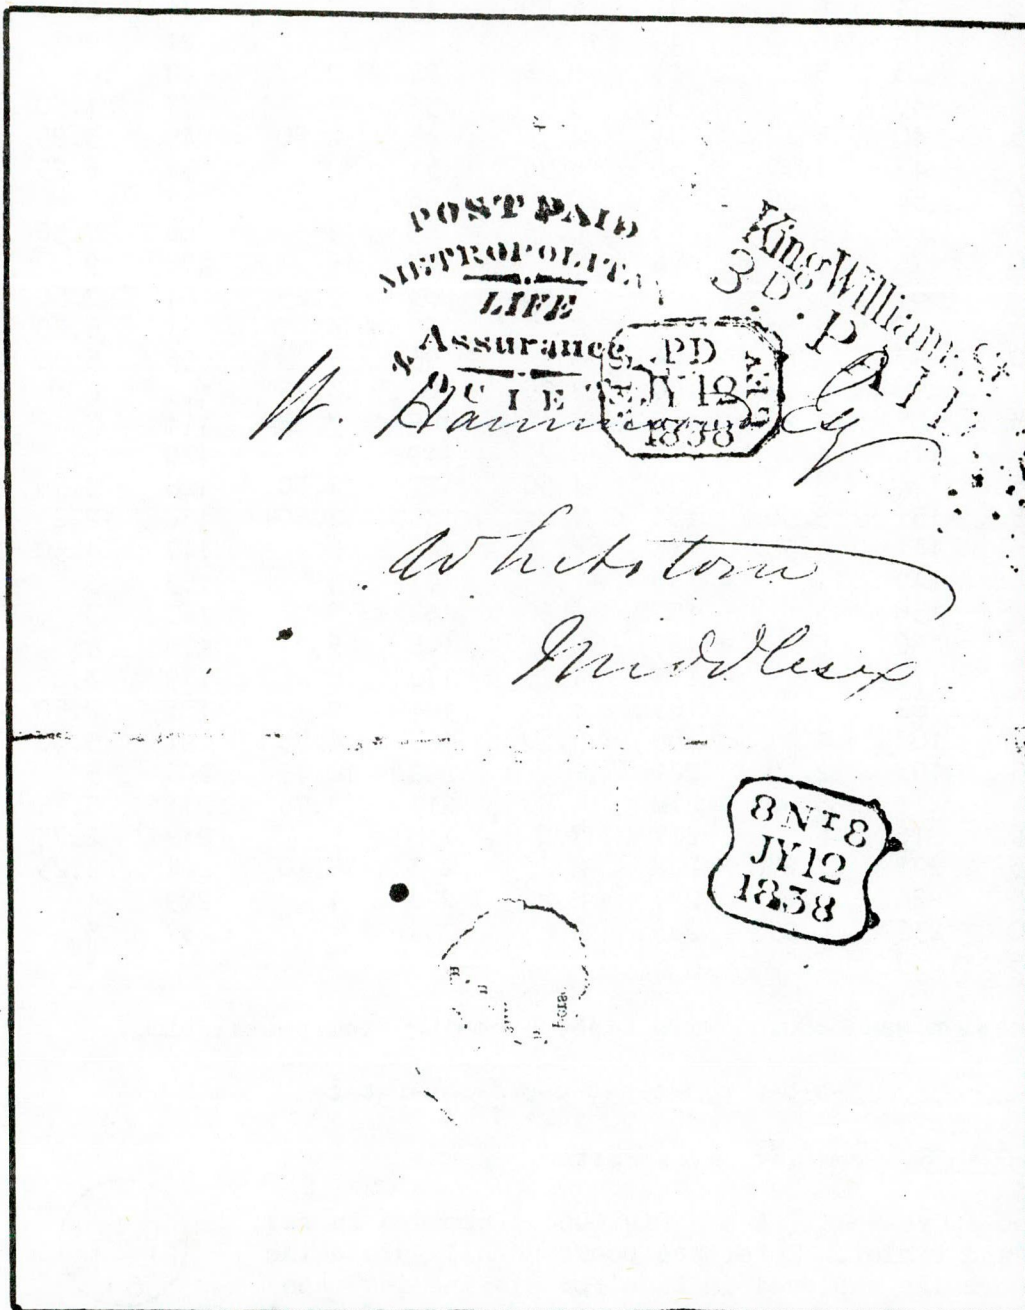 POST PAID
METROPOLITA
LIFE
& Assurance
OCIET
King William St
3D. PAID
PD
JY 12
1838
W. Esq
Whetstone
Middlesex
8 NT 8
JY 12
1838